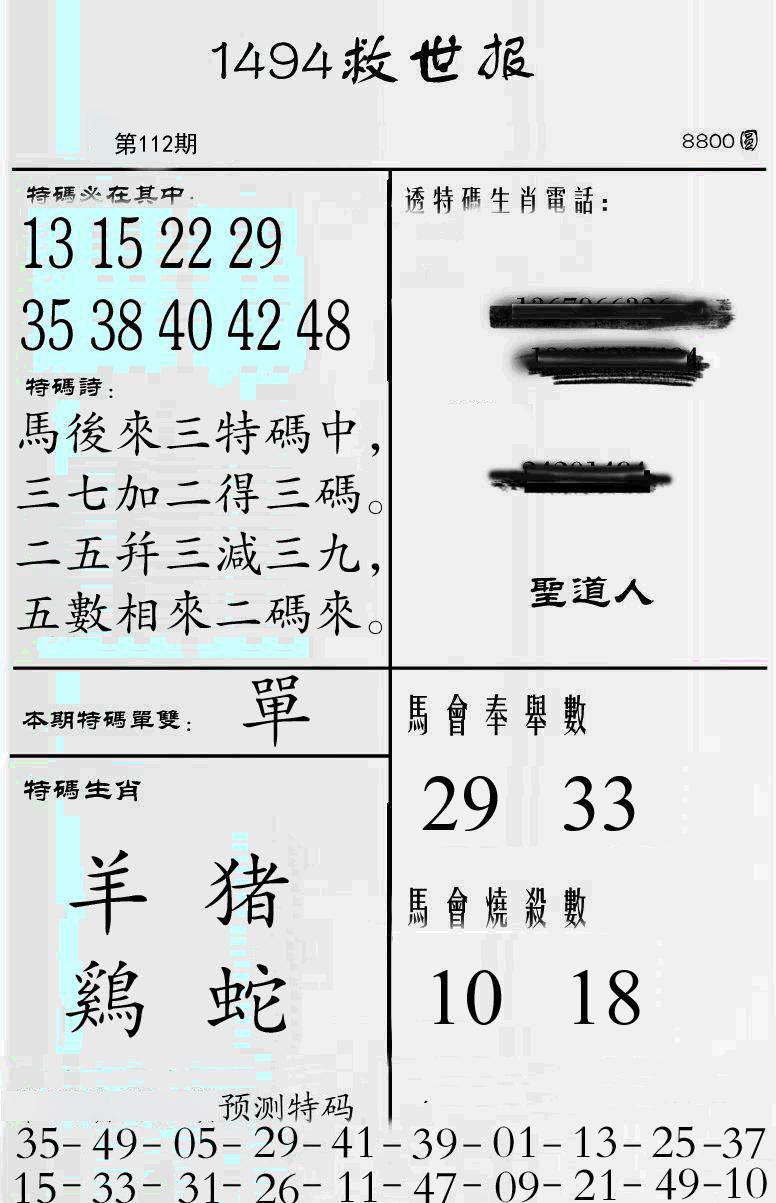 1494救世报
第112期
8800圓
特碼必在其中:
13 15 22 29
35 38 40 42 48
特碼詩:
馬後來三特碼中,
三七加二得三碼。
二五幷三減三九,
五數相來二碼來。
透特碼生肖電話:
聖道人
本期特碼單雙:
單
特碼生肖
羊 猪
鷄 蛇
馬會奉舉數
29 33
馬會燒殺數
10 18
预测特码
35-49-05-29-41-39-01-13-25-37
15-33-31-26-11-47-09-21-49-10